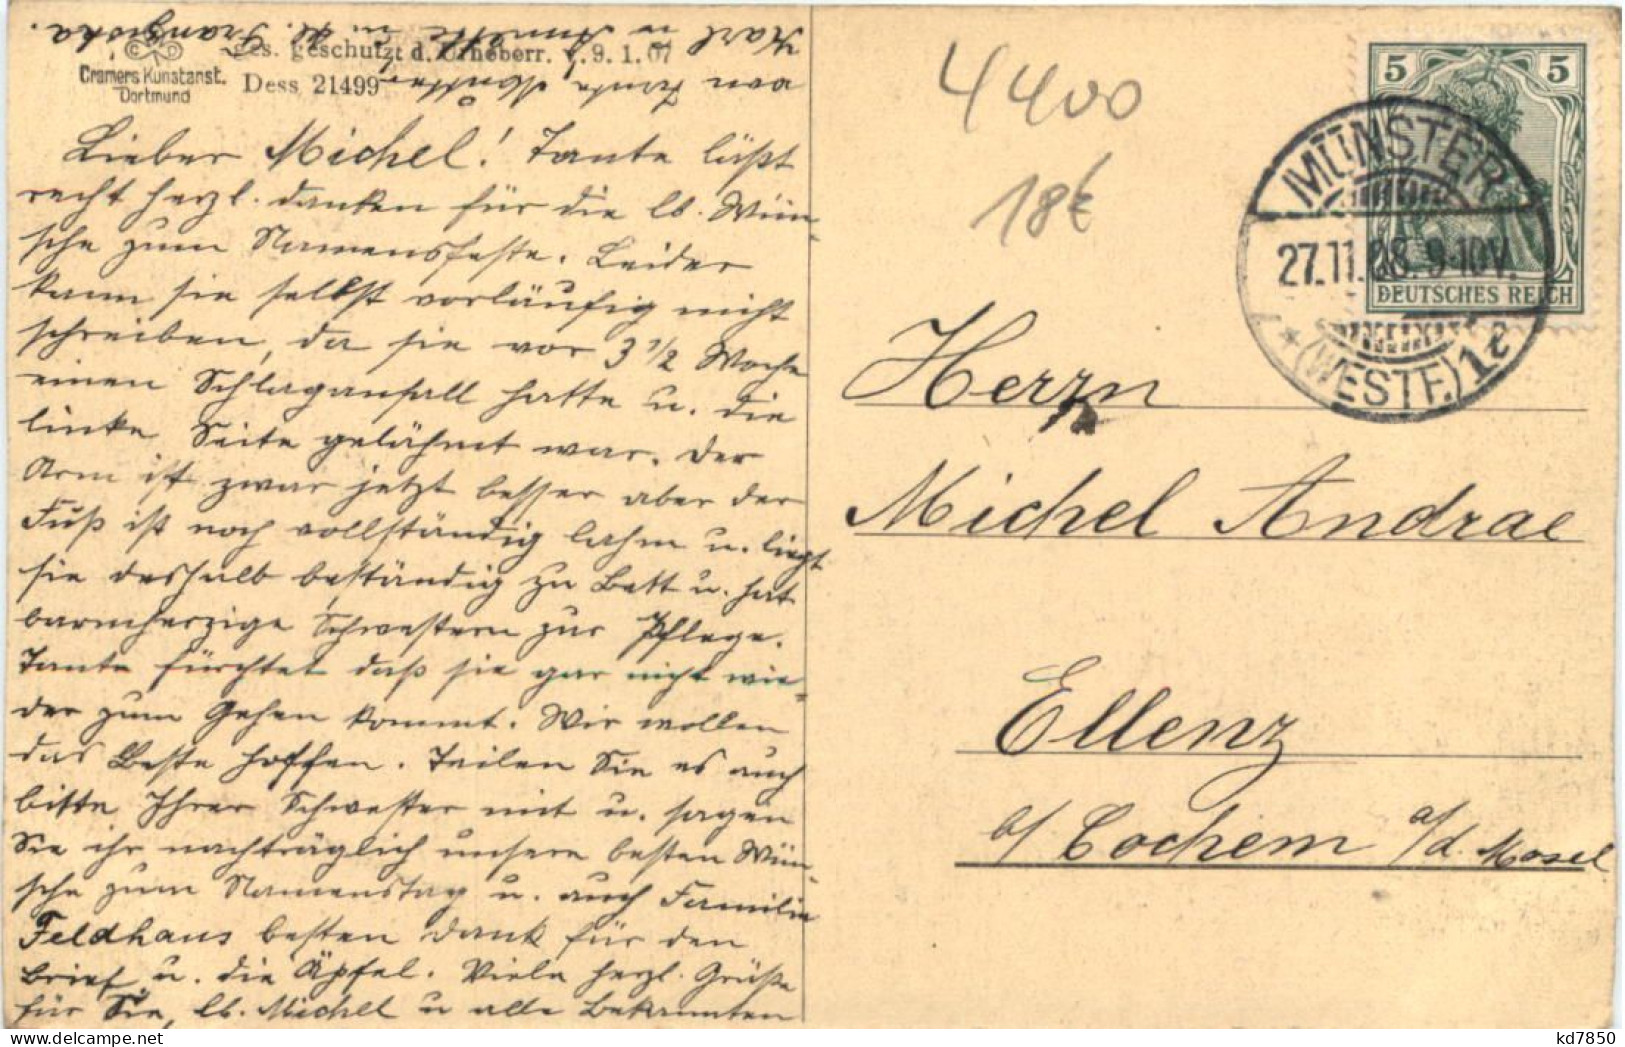 Cramers Kunstanst.
Dortmund
Ges. geschützt d. Urheberr. v. 9. 1. 07
Dess 21499
Lieber Michel! Tante läßt
recht herzl. danken für die lb. Wün-
sche zum Namensfeste. Leider
kann sie selbst vorläufig nicht
schreiben, da sie vor 3 1/2 Woche
einen Schlaganfall hatte u. die
linke Seite gelähmt war. Der
Arm ist zwar jetzt besser aber der
Fuß ist noch vollständig lahm u. liegt
sie deshalb beständig zu Bett u. hat
barmherzige Schwestern zur Pflege.
Tante fürchtet daß sie gar nicht wie-
der zum Gehen kommt. Wir wollen
das Beste hoffen. Teilen Sie es auch
bitte Ihrer Schwester mit u. sagen
Sie ihr nachträglich unsere besten Wün-
sche zum Namenstag u. auch Familie
Feldhaus besten Dank für den
Brief u. die Äpfel. Viele herzl. Grüße
für Sie, lb. Michel u alle Bekannten
von Tante Mutter,
Karl u Annette u. Franziska.
4400
18€
5 5
DEUTSCHES REICH
MÜNSTER
27.11.08. 9-10V.
* (WESTF.) 1e
Herrn
Michel Andrae
Ellenz
b/ Cochem a/d. Mosel
kd7850